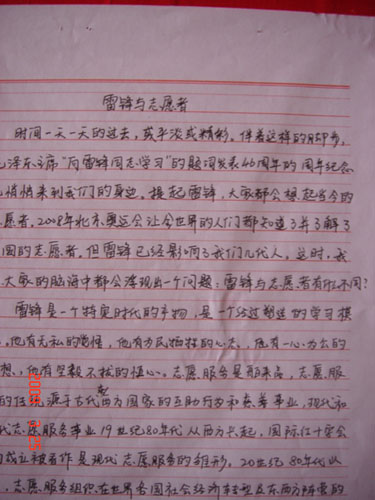 雷锋与志愿者
时间一天一天的过去，或平淡或精彩。伴着这样的脚步，
泽东主席“向雷锋同志学习”的题词发表46周年的周年纪念
悄悄来到我们的身边。提起雷锋，大家都会想起当今的
愿者。2008年北京奥运会让全世界的人们都知道了并了解了
国的志愿者。但雷锋已经影响了我们几代人。这时，我
大家的脑海中都会浮现出一个问题：雷锋与志愿者有何不同？
雷锋是一个特定时代的产物，是一个经过塑造的学习模
，他有无私的觉悟，他有为民牺牲的心灵，他有一心为公的
想，他有坚毅不拔的恒心。志愿服务是
，志愿服
的任 源于古代西方国家的互助行为和慈善事业，现代和
代志愿服务事业19世纪80年代从西方兴起，国际红十字会
的成立被看作是现代志愿服务的雏形。20世纪80年代以
，志愿服务组织在世界各国社会经济
2009 3 25